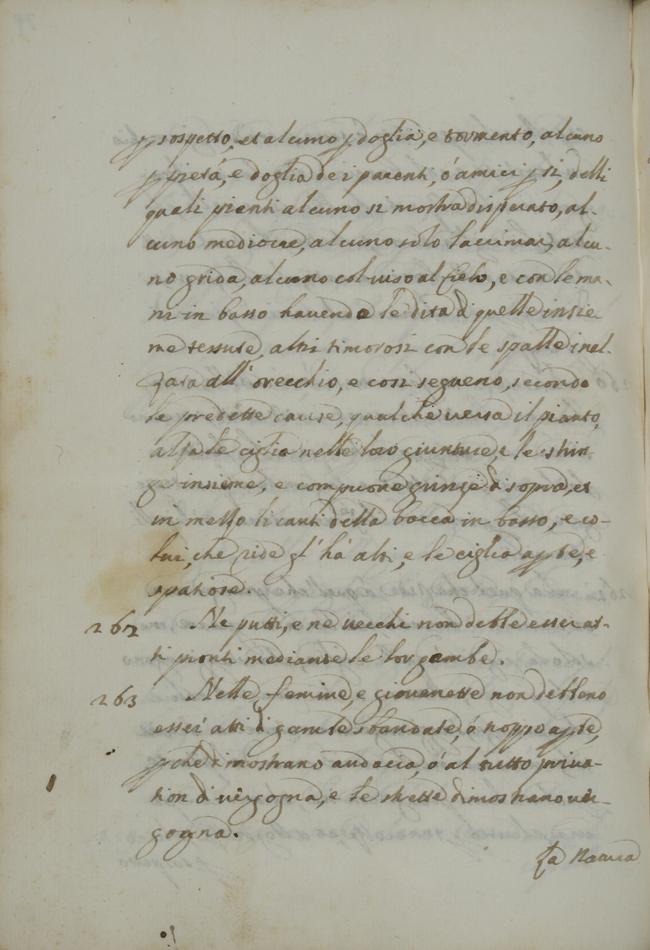 p sospetto, et alcuno p doglia, e tormento, alcuno
p pietá, e doglia de i parenti, ó amici p si, delli
quali pianti alcuno si mostra disperato, al-
cuno mediocre, alcuno solo lacrima, alcu-
no grida, alcuno col viso al Cielo, e con le ma-
ni in basso havendo le dita di quelle insie
me tessute, altri timorosi con le spalle inal-
zata all' orecchio, e cosi segueno, secondo
le predette cause, qualche versa il pianto,
alza le ciglia nelle loro giunture, e le strin
ge insieme, e compuone grinze di sopra, et
in mezzo li canti della bocca in basso, e co-
lui, che ride gl' há alti, e le ciglia apte, e
spatiose.
262 Ne putti, e ne vecchi non debbe esser at-
ti pronti mediante le lor gambe.
263 Nelle femine, e giovenette non debbono
esser atti di gambe sbandate, ó troppo apte,
pche dimostrano audacia, ó al tutto priva-
tion di vergogna, e le strette dimostrano ver-
gogna.
La Natura